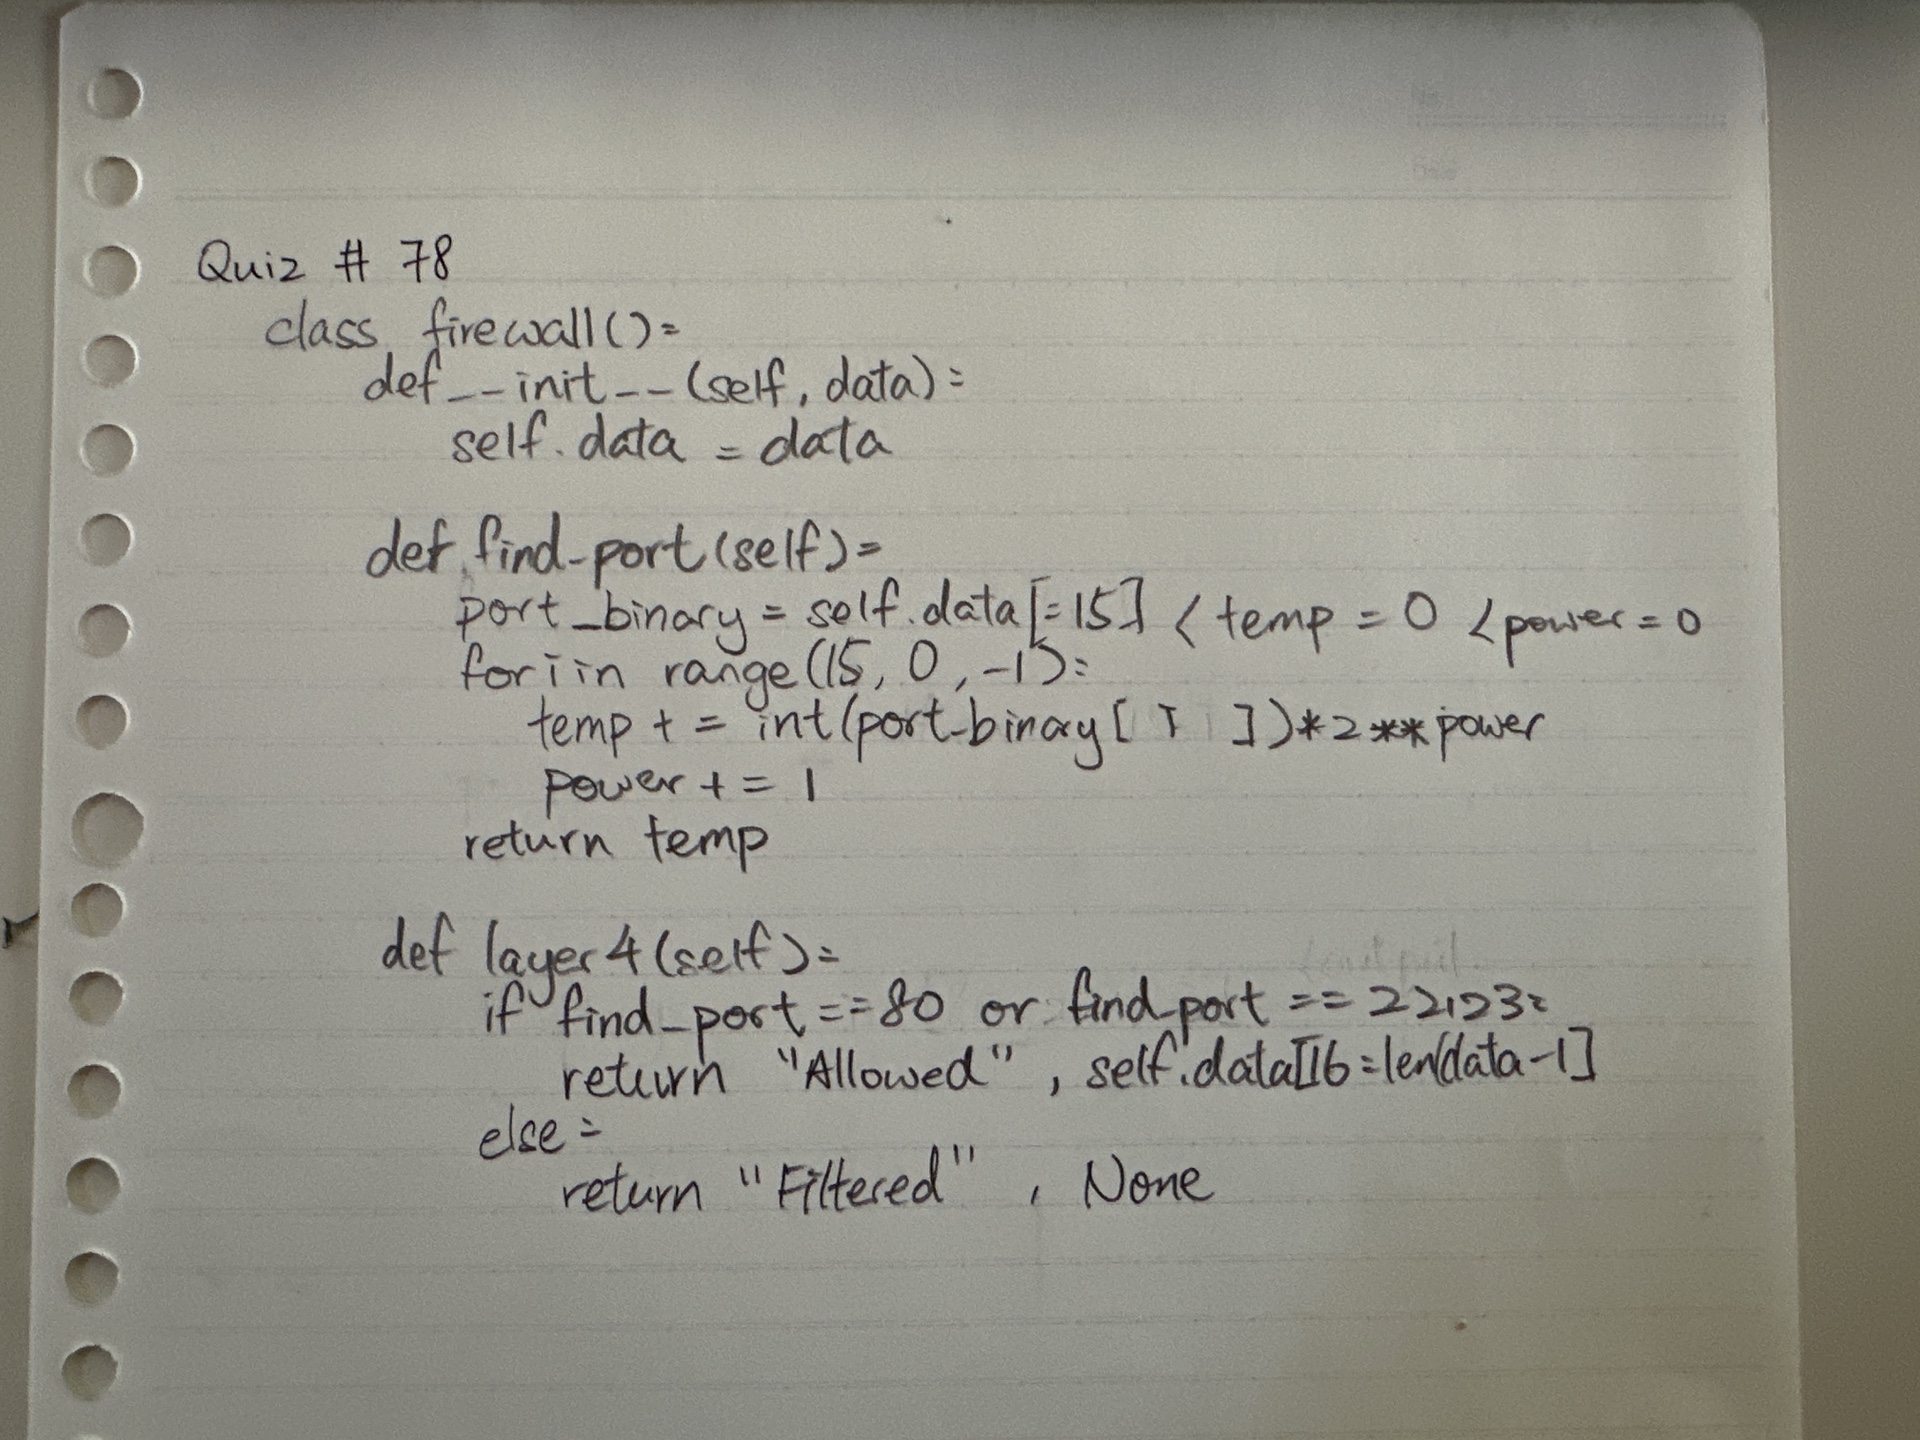 Quiz # 78
class firewall():
def __init__(self, data):
self.data = data
def find_port(self):
port_binary = self.data[:15] < temp = 0 < power = 0
for i in range(15, 0, -1):
temp += int(port_binary[ i ])*2**power
power += 1
return temp
def layer4(self):
if find_port == 80 or find_port == 22123:
return "Allowed", self.data[16:len(data-1]
else:
return "Filtered", None